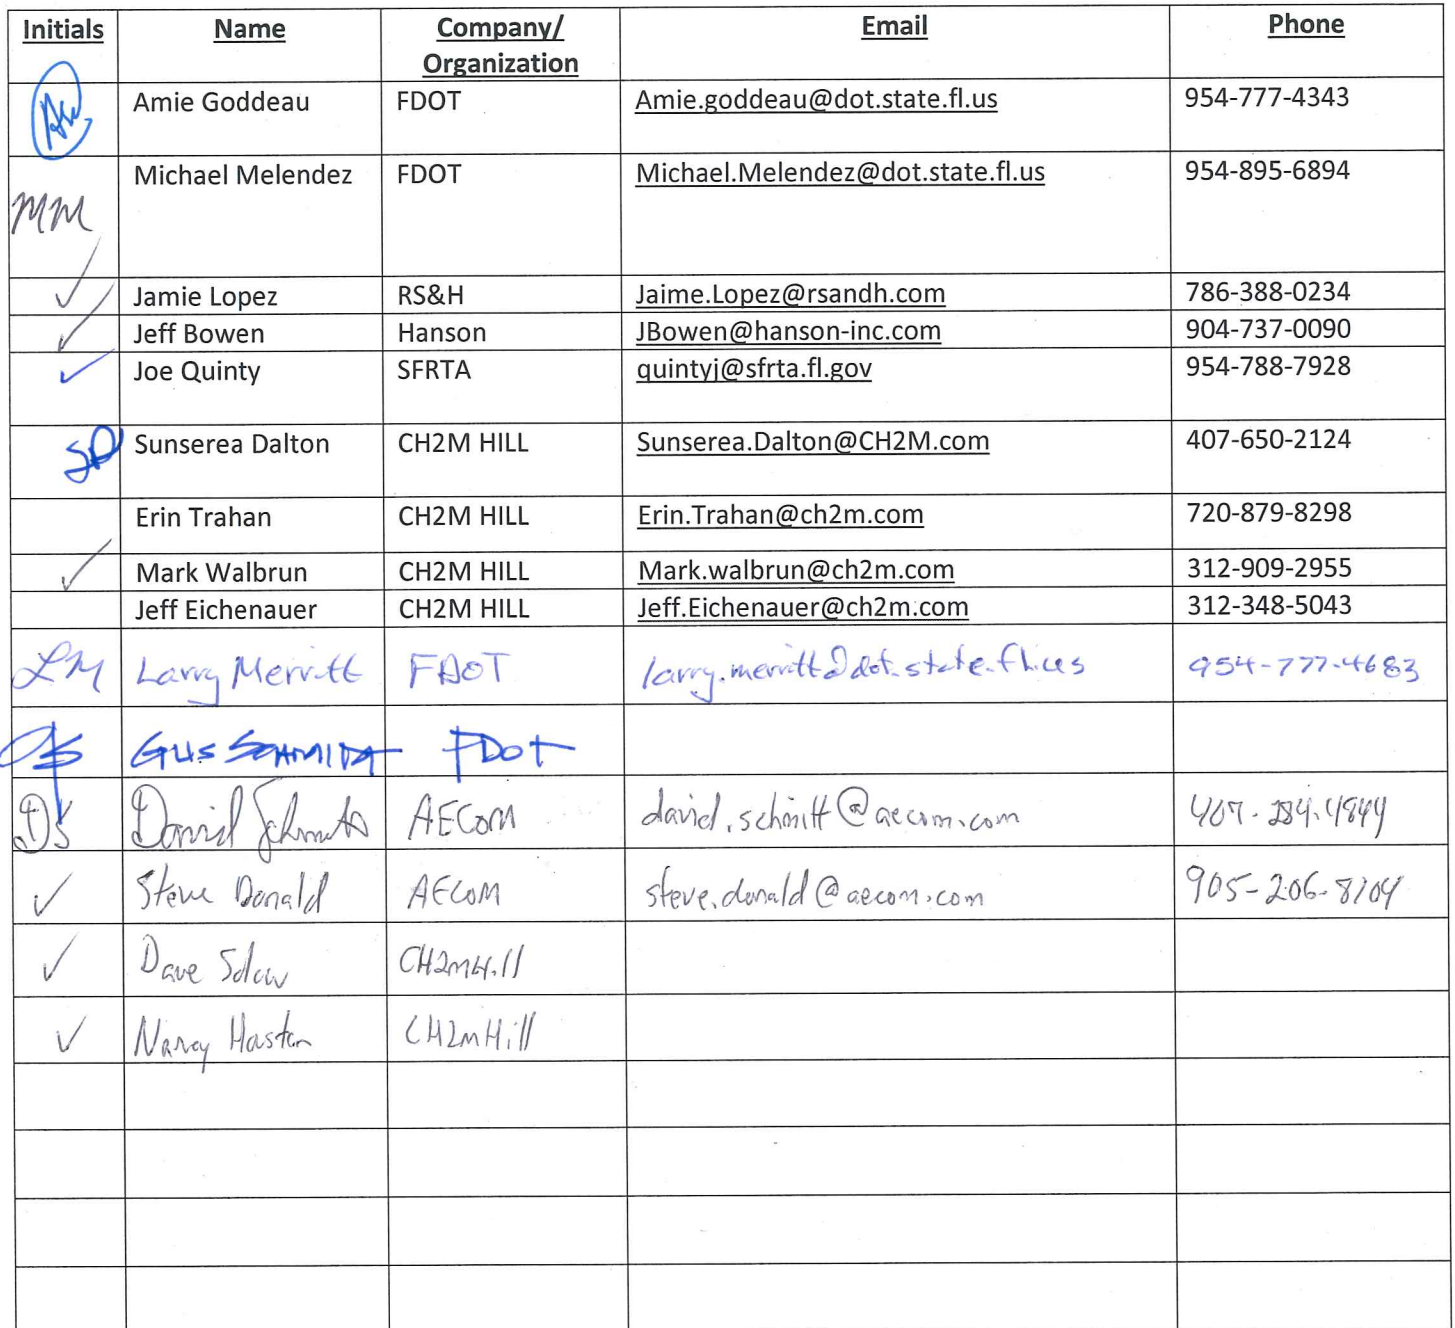 Initials Name Company/ Email Phone
Organization
Amie Goddeau FDOT Amie.goddeau@dot.state.fl.us 954-777-4343
MM Michael Melendez FDOT Michael.Melendez@dot.state.fl.us 954-895-6894
✓ Jamie Lopez RS&H Jaime.Lopez@rsandh.com 786-388-0234
✓ Jeff Bowen Hanson JBowen@hanson-inc.com 904-737-0090
✓ Joe Quinty SFRTA quintyj@sfrta.fl.gov 954-788-7928
SD Sunserea Dalton CH2M HILL Sunserea.Dalton@CH2M.com 407-650-2124
Erin Trahan CH2M HILL Erin.Trahan@ch2m.com 720-879-8298
✓ Mark Walbrun CH2M HILL Mark.walbrun@ch2m.com 312-909-2955
Jeff Eichenauer CH2M HILL Jeff.Eichenauer@ch2m.com 312-348-5043
LM Larry Merritt FDOT larry.merritt@dot.state.fl.us 954-777-4683
GUS SCHMIDT FDOT
DS David Schmitt AECOM david.schmitt@aecom.com
✓ Steve Donald AECOM steve.donald@aecom.com 905-206-8104
✓ Dave CH2MHill
✓ Nancy CH2MHill